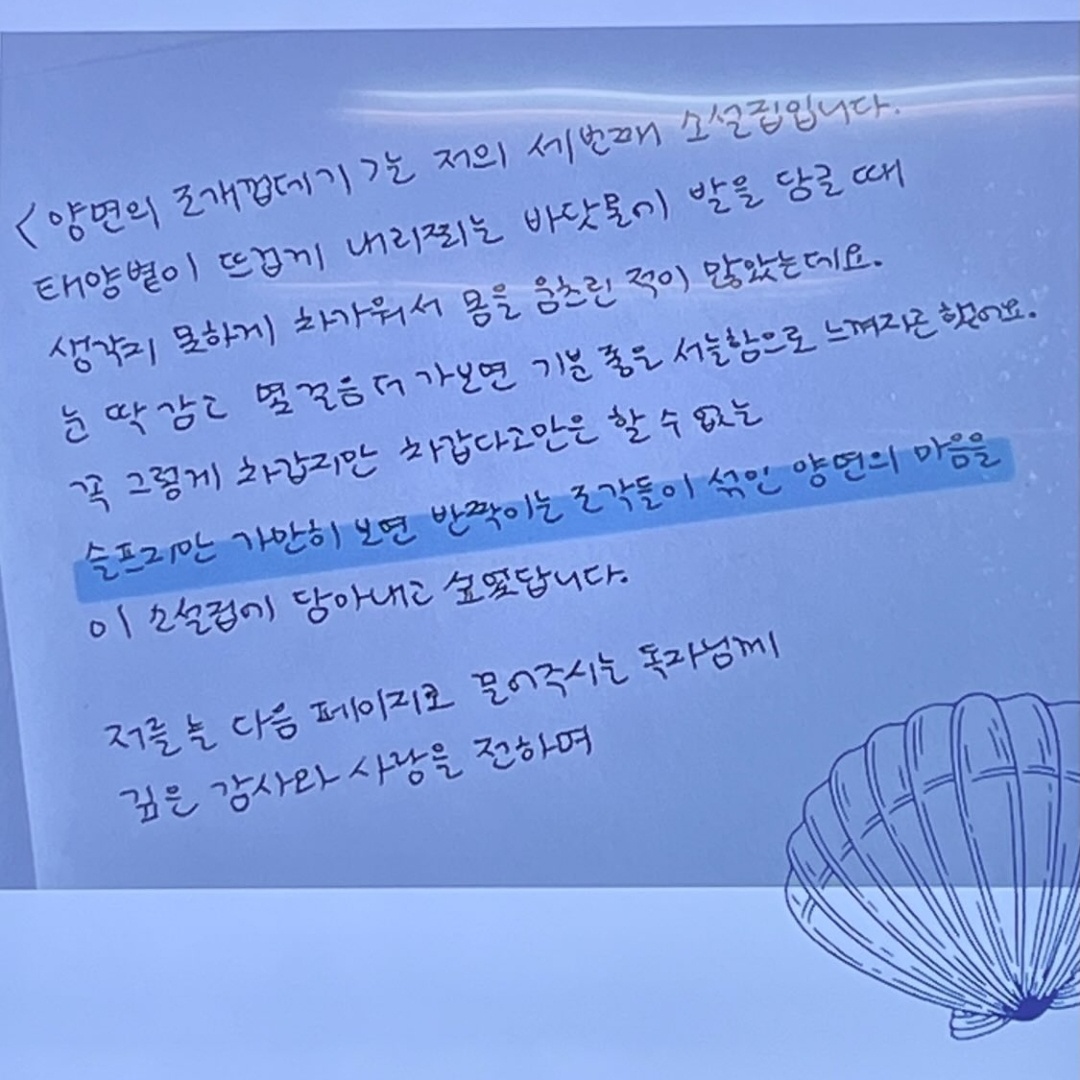 <양면의 조개껍데기>는 저의 세번째 소설집입니다.
태양볕이 뜨겁게 내리쬐는 바닷물에 발을 담글 때
생각지 못하게 차가워서 몸을 움츠린 적이 많았는데요.
눈 딱 감고 몇 걸음 더 가보면 기분 좋은 서늘함으로 느껴지곤 했어요.
꼭 그렇게 차갑지만 차갑다고만은 할 수 없는
슬프지만 가만히 보면 반짝이는 조각들이 섞인 양면의 마음을
이 소설집에 담아내고 싶었답니다.
저를 늘 다음 페이지로 끌어주시는 독자님께
깊은 감사와 사랑을 전하며